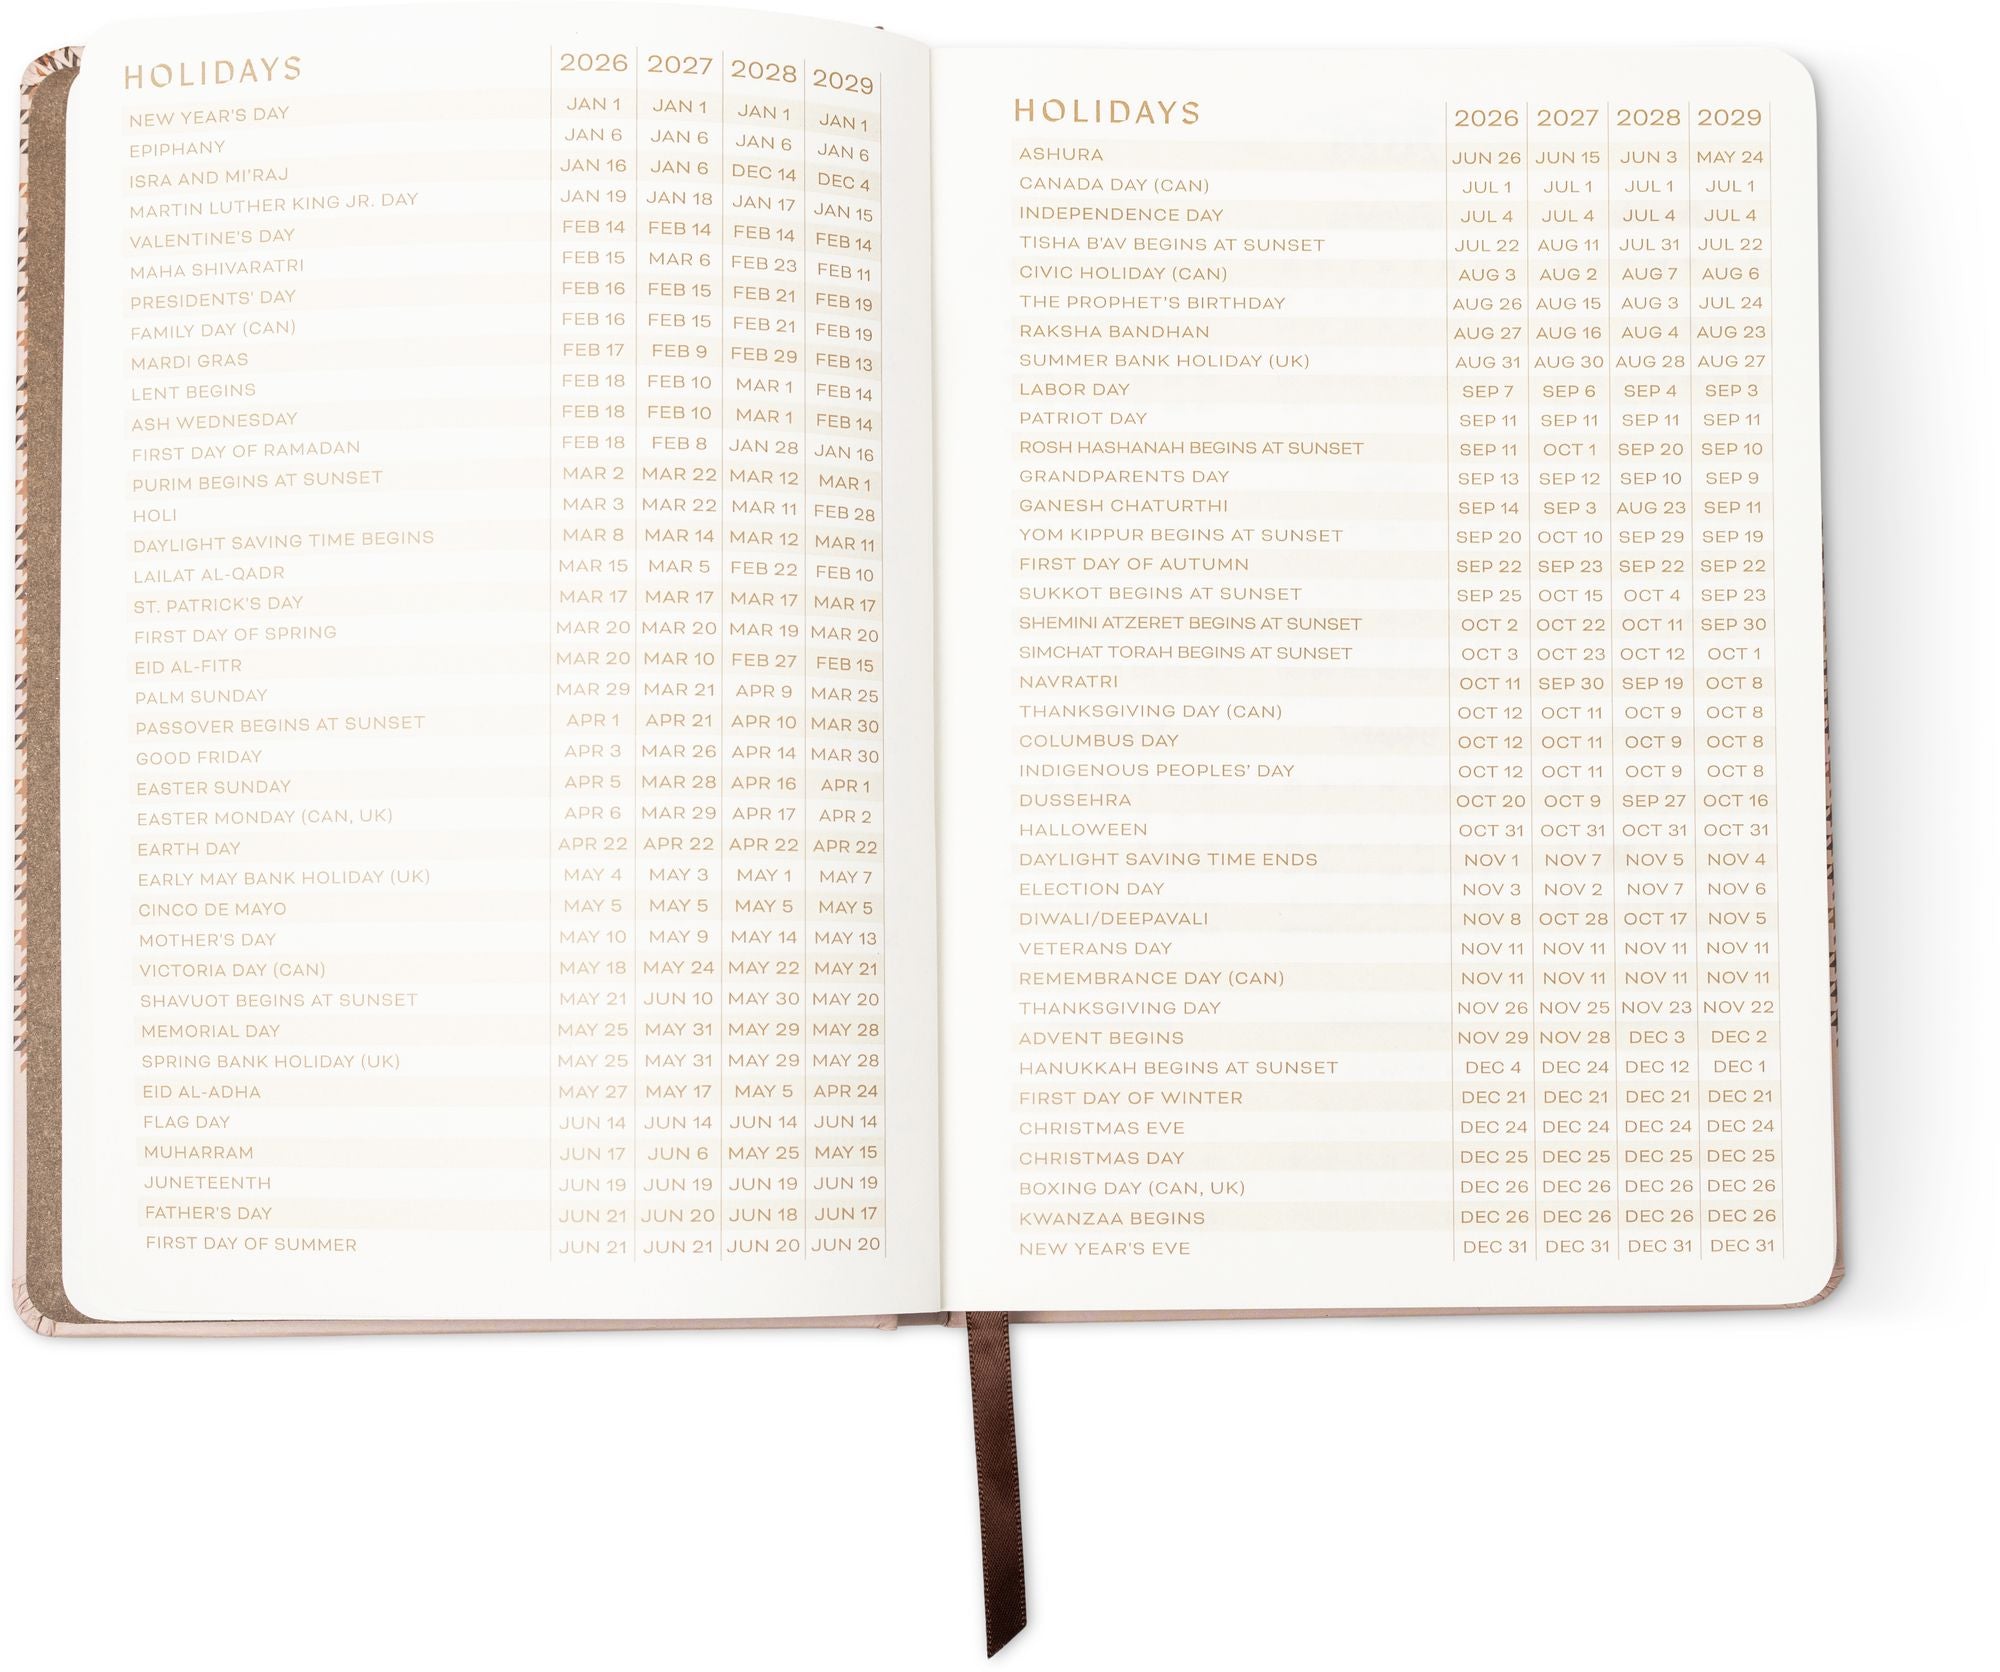 HOLIDAYS 2026 2027 2028 2029
NEW YEAR'S DAY JAN 1 JAN 1 JAN 1 JAN 1
EPIPHANY JAN 6 JAN 6 JAN 6 JAN 6
ISRA AND MI'RAJ JAN 16 JAN 6 DEC 14 DEC 4
MARTIN LUTHER KING JR. DAY JAN 19 JAN 18 JAN 17 JAN 15
VALENTINE'S DAY FEB 14 FEB 14 FEB 14 FEB 14
MAHA SHIVARATRI FEB 15 MAR 6 FEB 23 FEB 11
PRESIDENTS' DAY FEB 16 FEB 15 FEB 21 FEB 19
FAMILY DAY (CAN) FEB 16 FEB 15 FEB 21 FEB 19
MARDI GRAS FEB 17 FEB 9 FEB 29 FEB 13
LENT BEGINS FEB 18 FEB 10 MAR 1 FEB 14
ASH WEDNESDAY FEB 18 FEB 10 MAR 1 FEB 14
FIRST DAY OF RAMADAN FEB 18 FEB 8 JAN 28 JAN 16
PURIM BEGINS AT SUNSET MAR 2 MAR 22 MAR 12 MAR 1
HOLI MAR 3 MAR 22 MAR 11 FEB 28
DAYLIGHT SAVING TIME BEGINS MAR 8 MAR 14 MAR 12 MAR 11
LAILAT AL-QADR MAR 15 MAR 5 FEB 22 FEB 10
ST. PATRICK'S DAY MAR 17 MAR 17 MAR 17 MAR 17
FIRST DAY OF SPRING MAR 20 MAR 20 MAR 19 MAR 20
EID AL-FITR MAR 20 MAR 10 FEB 27 FEB 15
PALM SUNDAY MAR 29 MAR 21 APR 9 MAR 25
PASSOVER BEGINS AT SUNSET APR 1 APR 21 APR 10 MAR 30
GOOD FRIDAY APR 3 MAR 26 APR 14 MAR 30
EASTER SUNDAY APR 5 MAR 28 APR 16 APR 1
EASTER MONDAY (CAN, UK) APR 6 MAR 29 APR 17 APR 2
EARTH DAY APR 22 APR 22 APR 22 APR 22
EARLY MAY BANK HOLIDAY (UK) MAY 4 MAY 3 MAY 1 MAY 7
CINCO DE MAYO MAY 5 MAY 5 MAY 5 MAY 5
MOTHER'S DAY MAY 10 MAY 9 MAY 14 MAY 13
VICTORIA DAY (CAN) MAY 18 MAY 24 MAY 22 MAY 21
SHAVUOT BEGINS AT SUNSET MAY 21 JUN 10 MAY 30 MAY 20
MEMORIAL DAY MAY 25 MAY 31 MAY 29 MAY 28
SPRING BANK HOLIDAY (UK) MAY 25 MAY 31 MAY 29 MAY 28
EID AL-ADHA MAY 27 MAY 17 MAY 5 APR 24
FLAG DAY JUN 14 JUN 14 JUN 14 JUN 14
MUHARRAM JUN 17 JUN 6 MAY 25 MAY 15
JUNETEENTH JUN 19 JUN 19 JUN 19 JUN 19
FATHER'S DAY JUN 21 JUN 20 JUN 18 JUN 17
FIRST DAY OF SUMMER JUN 21 JUN 21 JUN 20 JUN 20
HOLIDAYS 2026 2027 2028 2029
ASHURA JUN 26 JUN 15 JUN 3 MAY 24
CANADA DAY (CAN) JUL 1 JUL 1 JUL 1 JUL 1
INDEPENDENCE DAY JUL 4 JUL 4 JUL 4 JUL 4
TISHA B'AV BEGINS AT SUNSET JUL 22 AUG 11 JUL 31 JUL 22
CIVIC HOLIDAY (CAN) AUG 3 AUG 2 AUG 7 AUG 6
THE PROPHET'S BIRTHDAY AUG 26 AUG 15 AUG 3 JUL 24
RAKSHA BANDHAN AUG 27 AUG 16 AUG 4 AUG 23
SUMMER BANK HOLIDAY (UK) AUG 31 AUG 30 AUG 28 AUG 27
LABOR DAY SEP 7 SEP 6 SEP 4 SEP 3
PATRIOT DAY SEP 11 SEP 11 SEP 11 SEP 11
ROSH HASHANAH BEGINS AT SUNSET SEP 11 OCT 1 SEP 20 SEP 10
GRANDPARENTS DAY SEP 13 SEP 12 SEP 10 SEP 9
GANESH CHATURTHI SEP 14 SEP 3 AUG 23 SEP 11
YOM KIPPUR BEGINS AT SUNSET SEP 20 OCT 10 SEP 29 SEP 19
FIRST DAY OF AUTUMN SEP 22 SEP 23 SEP 22 SEP 22
SUKKOT BEGINS AT SUNSET SEP 25 OCT 15 OCT 4 SEP 23
SHEMINI ATZERET BEGINS AT SUNSET OCT 2 OCT 22 OCT 11 SEP 30
SIMCHAT TORAH BEGINS AT SUNSET OCT 3 OCT 23 OCT 12 OCT 1
NAVRATRI OCT 11 SEP 30 SEP 19 OCT 8
THANKSGIVING DAY (CAN) OCT 12 OCT 11 OCT 9 OCT 8
COLUMBUS DAY OCT 12 OCT 11 OCT 9 OCT 8
INDIGENOUS PEOPLES' DAY OCT 12 OCT 11 OCT 9 OCT 8
DUSSEHRA OCT 20 OCT 9 SEP 27 OCT 16
HALLOWEEN OCT 31 OCT 31 OCT 31 OCT 31
DAYLIGHT SAVING TIME ENDS NOV 1 NOV 7 NOV 5 NOV 4
ELECTION DAY NOV 3 NOV 2 NOV 7 NOV 6
DIWALI/DEEPAVALI NOV 8 OCT 28 OCT 17 NOV 5
VETERANS DAY NOV 11 NOV 11 NOV 11 NOV 11
REMEMBRANCE DAY (CAN) NOV 11 NOV 11 NOV 11 NOV 11
THANKSGIVING DAY NOV 26 NOV 25 NOV 23 NOV 22
ADVENT BEGINS NOV 29 NOV 28 DEC 3 DEC 2
HANUKKAH BEGINS AT SUNSET DEC 4 DEC 24 DEC 12 DEC 1
FIRST DAY OF WINTER DEC 21 DEC 21 DEC 21 DEC 21
CHRISTMAS EVE DEC 24 DEC 24 DEC 24 DEC 24
CHRISTMAS DAY DEC 25 DEC 25 DEC 25 DEC 25
BOXING DAY (CAN, UK) DEC 26 DEC 26 DEC 26 DEC 26
KWANZAA BEGINS DEC 26 DEC 26 DEC 26 DEC 26
NEW YEAR'S EVE DEC 31 DEC 31 DEC 31 DEC 31